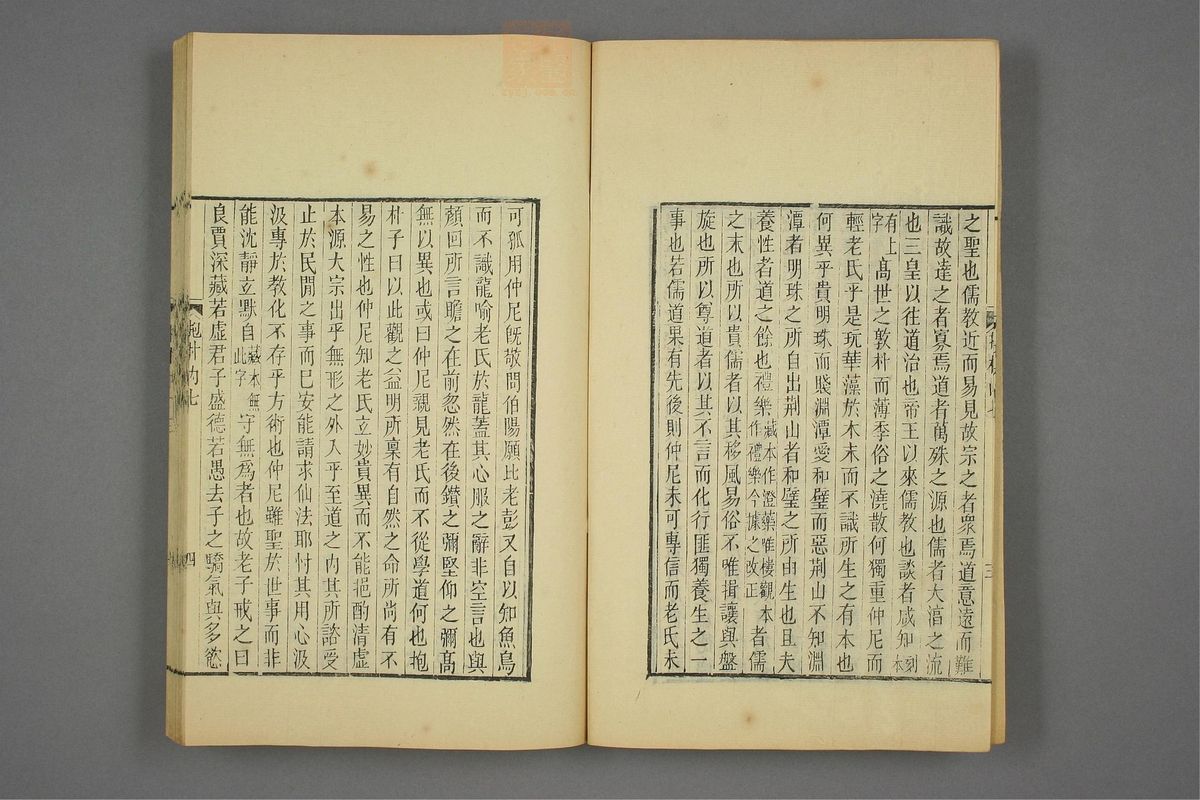 之聖也儒教近而易見故宗之者衆焉道意遠而難
識故達之者寡焉道者萬殊之源也儒者大淳之流
也三皇以往道治也帝王以來儒教也談者咸知刻本
有上字高世之敦朴而薄季俗之澆散何獨重仲尼而
輕老氏乎是玩華藻於木末而不識所生之有本也
何異乎貴明珠而賤淵潭愛和璧而惡荆山不知淵
潭者明珠之所自出荆山者和璧之所由生也且夫
養性者道之餘也禮樂藏本作證藥唯樓觀本作禮樂今據之改正者儒
之末也所以貴儒者以其移風易俗不唯揖讓與盤
旋也所以尊道者以其不言而化行匪獨養生之一
事也若儒道果有先後則仲尼未可專信而老氏未
可孤用仲尼旣敬問伯陽願比老彭又自以知魚鳥
而不識龍喻老氏於龍蓋其心服之辭非空言也與
顏回所言瞻之在前忽然在後鑽之彌堅仰之彌高
無以異也或曰仲尼親見老氏而不從學道何也抱
朴子曰以此觀之益明所稟有自然之命所尚有不
易之性也仲尼知老氏立妙貴異而不能挹酌清虛
本源大宗出乎無形之外入乎至道之內其所諮受
止於民閒之事而已安能請求仙法耶忖其用心汲
汲專於教化不存乎方術也仲尼雖聖於世事而非
能沈靜立默自藏本無此字守無爲者也故老子戒之曰
良賈深藏若虛君子盛德若愚去子之驕氣與多慾
抱朴內七
四